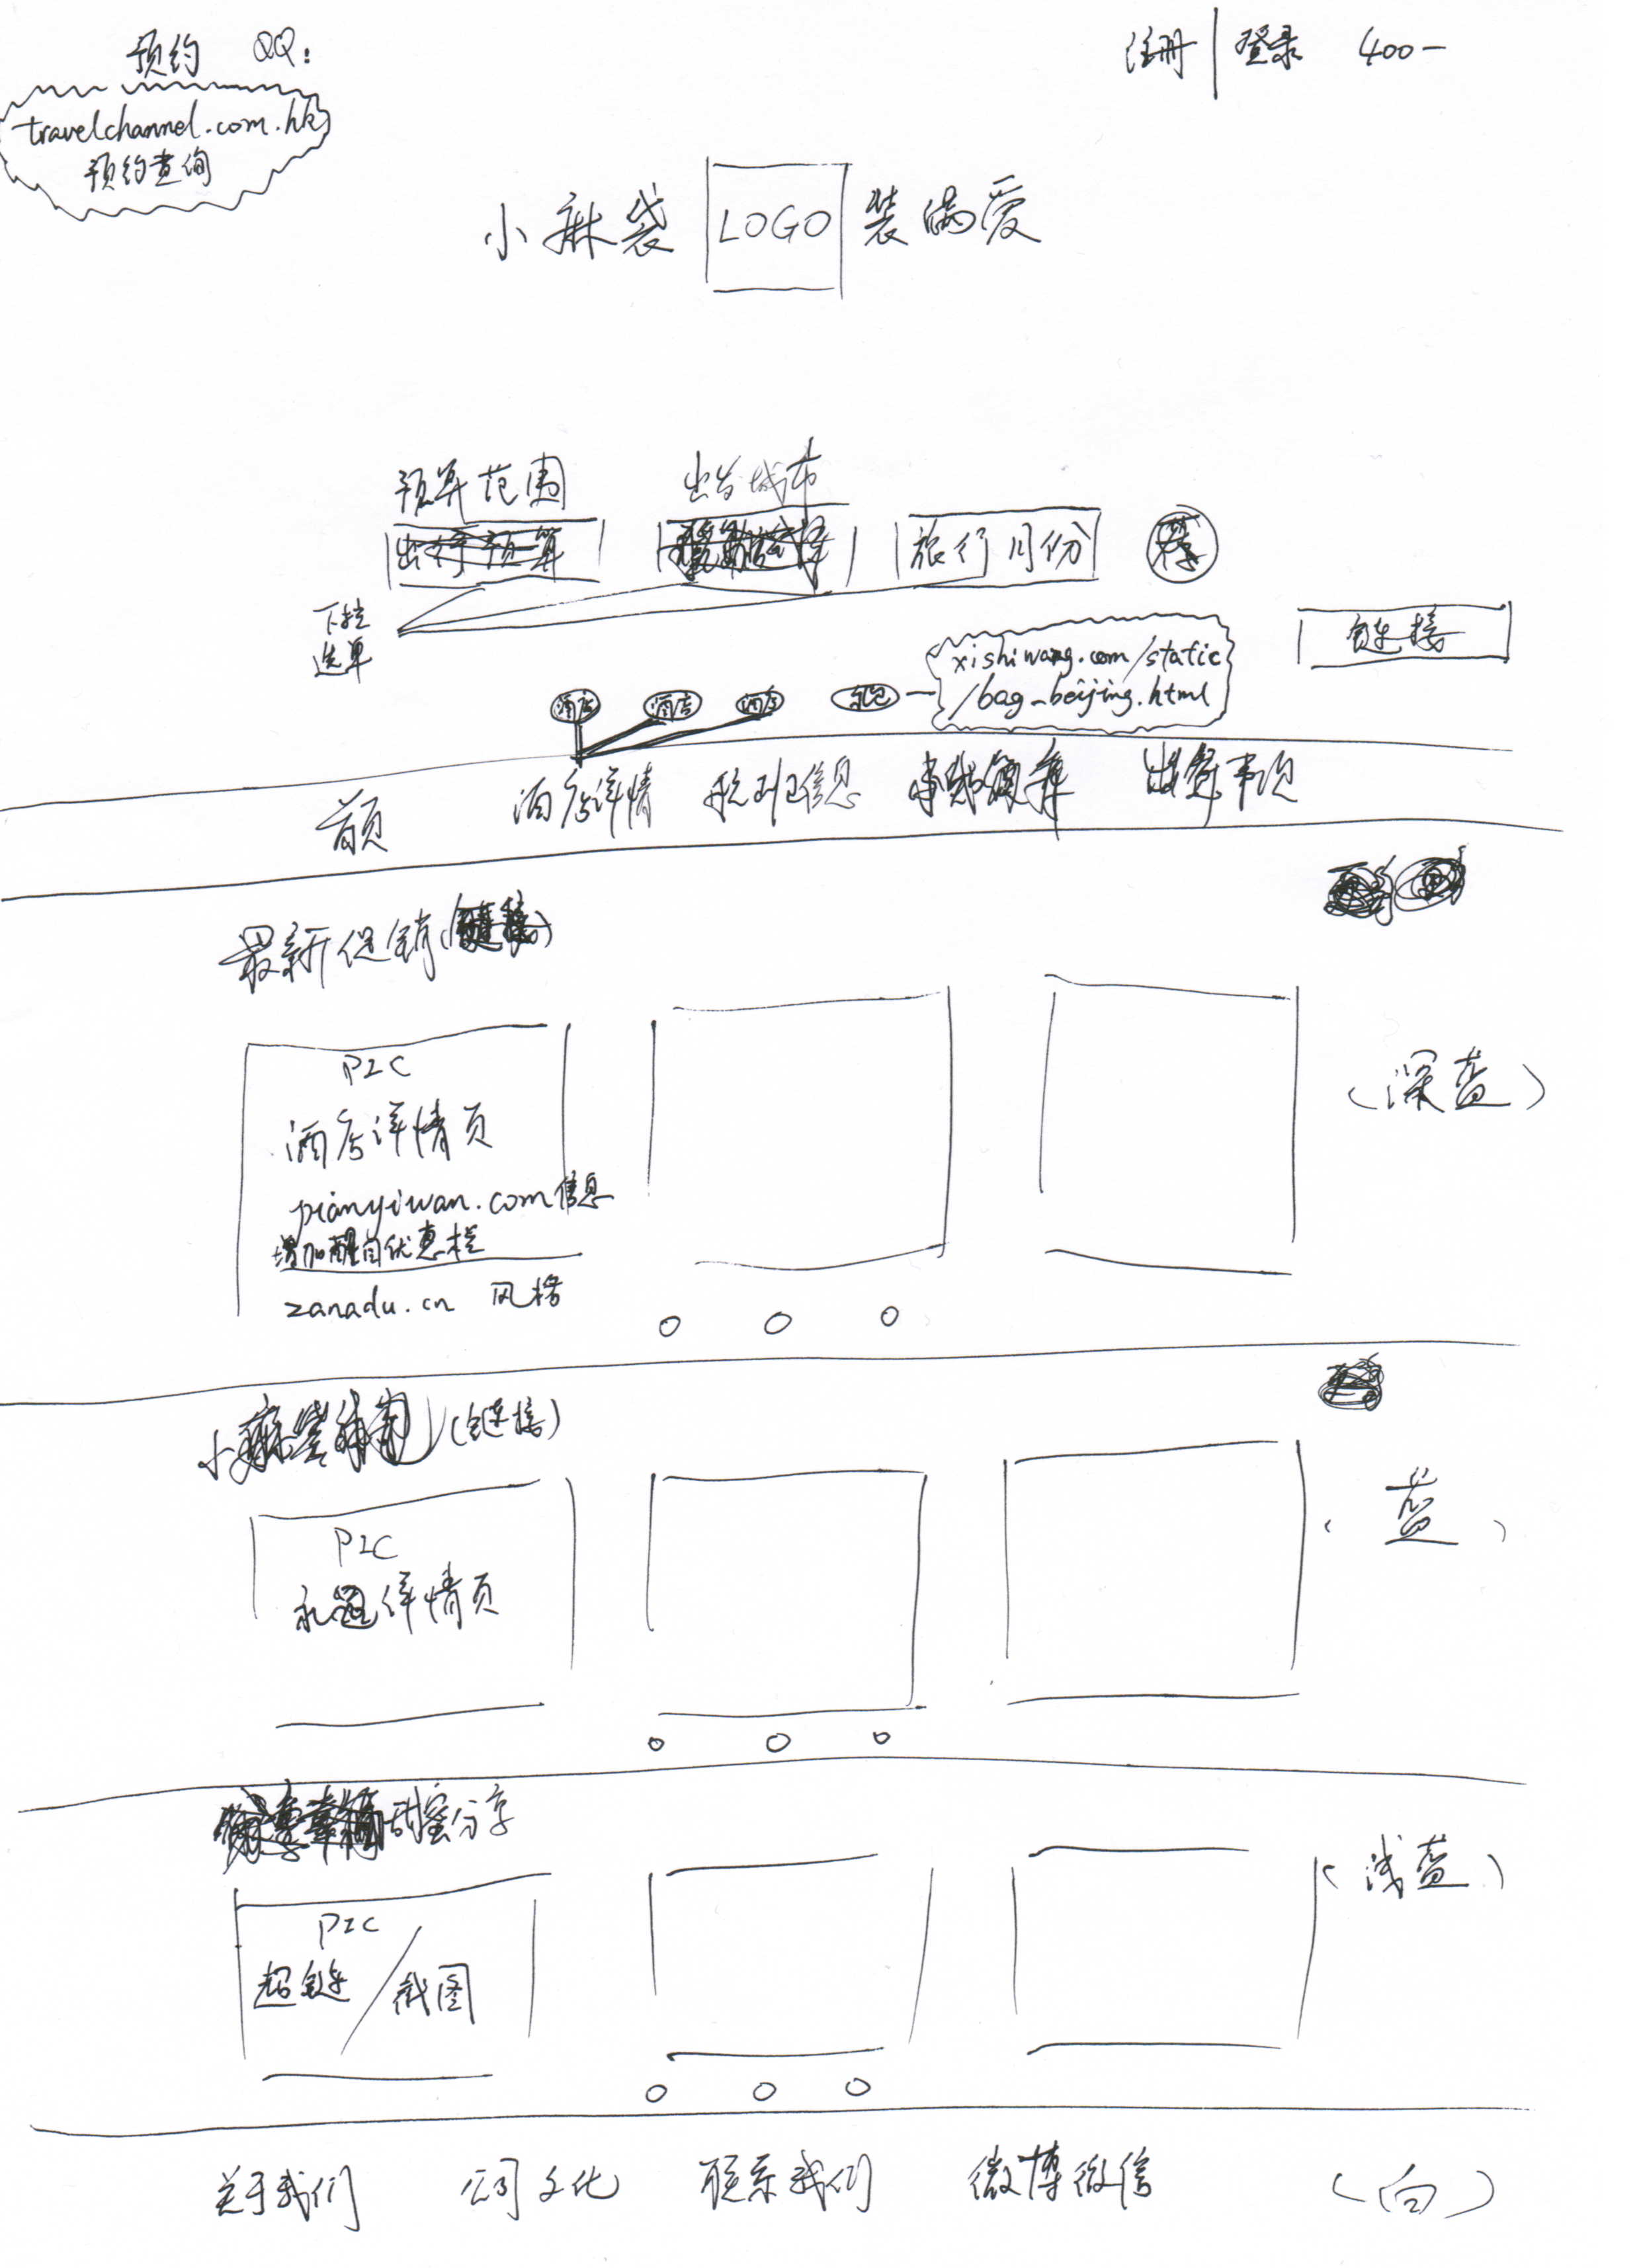 预约 QQ:
注册 | 登录 400-
travelchannel.com.hk
预约查询
小麻袋 LOGO 装满爱
预算范围 出发城市
旅行月份
下拉
选单
链接
xishiwang.com/static
/bag_beijing.html
酒店 酒店 酒店
首页 酒店详情 航班信息
最新促销
PIC
酒店详情页
pianyiwan.com信息
增加醒目优惠栏
zanadu.cn 风格
(深蓝)
(链接)
PIC
详情页
(蓝)
甜蜜分享
PIC
超链/截图
(浅蓝)
关于我们 公司文化 联系我们 微博微信 (白)